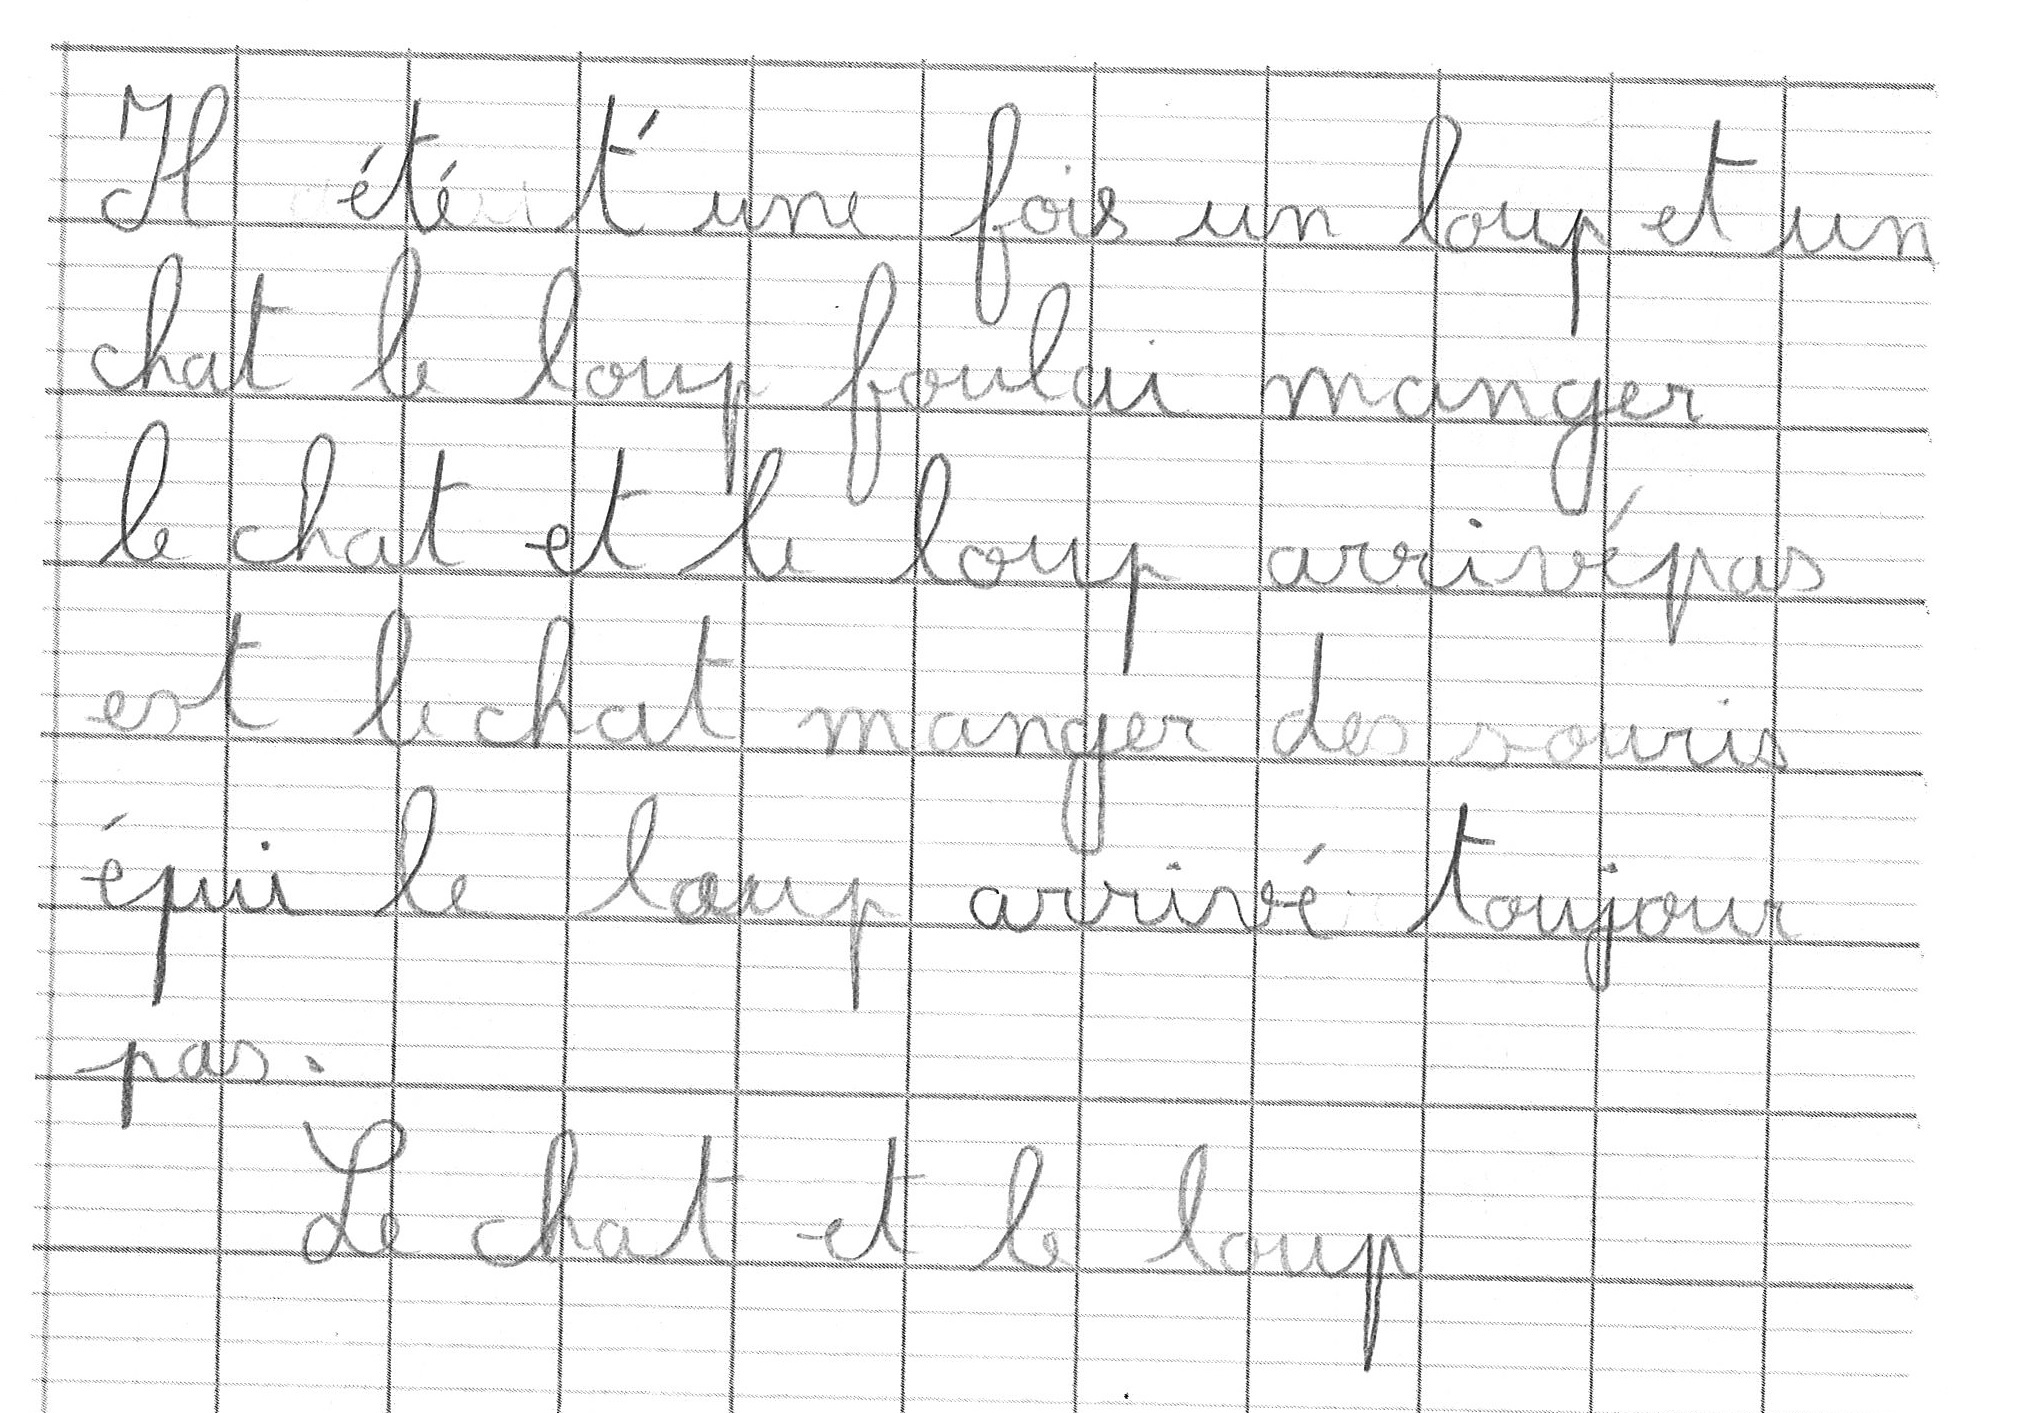 Il été t' une fois un loup et un
chat le loup foulai manger
le chat et le loup arrivé pas
est le chat manger des souris
épui le loup arrivé toujour
pas.
Le chat et le loup